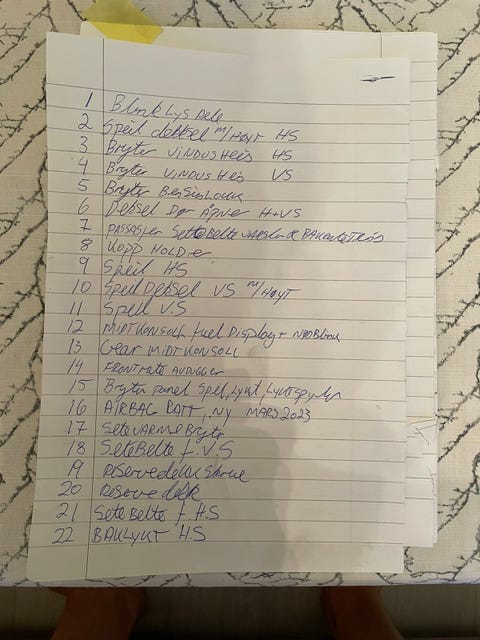 1 Blink Lys Dele
2 Speil deksel m/Høyt HS
3 Bryter VINDUSHeis HS
4 Bryter VINDUSHeis VS
5 Bryter BensinLouk
6 Deksel Dør Åpner H+VS
7 PASSASJER SetteBelte
8 Kopp HOLDer
9 Speil HS
10 Speil Deksel VS m/HØYT
11 Speil V.S
12 MiDTKONSOLL fuel Display + NØDBlink
13 Gear MIDTKONSOLL
14 FRONTrute AVDUGGer
15 Bryter panel Speil, Lykt, Lyktspyler
16 AIRBAG RATT, NY MARS 2023
17 Sete VARME Bryter
18 SeteBelte f.V.S
19 Reservedekk Skrue
20 Reserve dekk
21 SeteBelte f.H.S
22 BAKLYKT H.S